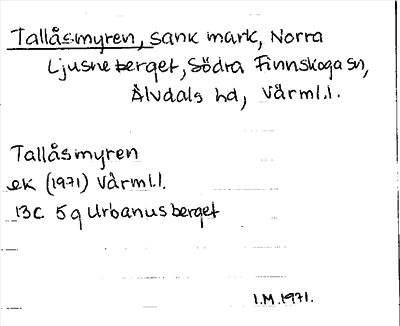 Tallåsmyren, sank mark, Norra
Ljusneberget, Södra Finnskoga sn,
Älvdals hd, Värml.l.
Tallåsmyren
ek (1971) Värml.l.
13C 5g Urbanusberget
I.M. 1971.